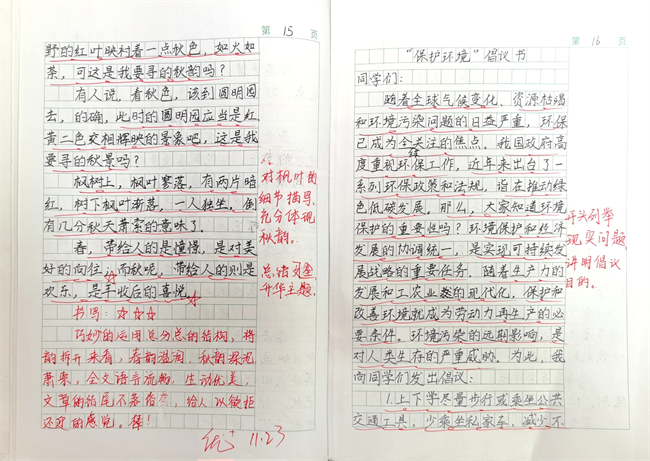 第 15 页
野的红叶映衬着一点秋色，如火如
荼，可这是我要寻的秋韵吗？
有人说，看秋色，该到圆明园
去，的确，此时的圆明园应当是红
黄二色交相辉映的景象吧，这是我
要寻的秋景吗？
枫树上，枫叶寥落，有两片暗
红，树下枫叶渐落，一人独坐，倒
有几分秋天萧索的意味了。
春，带给人的是憧憬，是对美
好的向往，而秋呢，带给人的则是
欢乐，是丰收后的喜悦。
对枫叶的
细节描写，
充分体现
秋韵。
总结
升华主题。
书写：☆☆☆
巧妙的运用总分总的结构，将
韵拆开来看，春韵滋润，秋韵深沉
萧索，全文语言流畅，生动优美，
文章的结尾不落俗套，给人以欲拒
还迎的感觉。棒！
优+ 11.23
第 16 页
“保护环境”倡议书
同学们：
随着全球气候变化、资源枯竭
和环境污染问题的日益严重，环保
已成为全球关注的焦点，我国政府高
度重视环保工作，近年来出台了一
系列环保政策和法规，旨在推动绿
色低碳发展。那么，大家知道环境
保护的重要性吗？环境保护和经济
发展的协调统一，是实现可持续发
展战略的重要任务。随着生产力的
发展和工农业的现代化，保护和
改善环境就成为劳动力再生产的必
要条件。环境污染的远期影响，是
对人类生存的严重威胁。为此，我
向同学们发出倡议：
1.上下学尽量步行或乘坐公共
交通工具，少乘坐私家车，减少不
开头列举
现实问题
讲明倡议
目的。